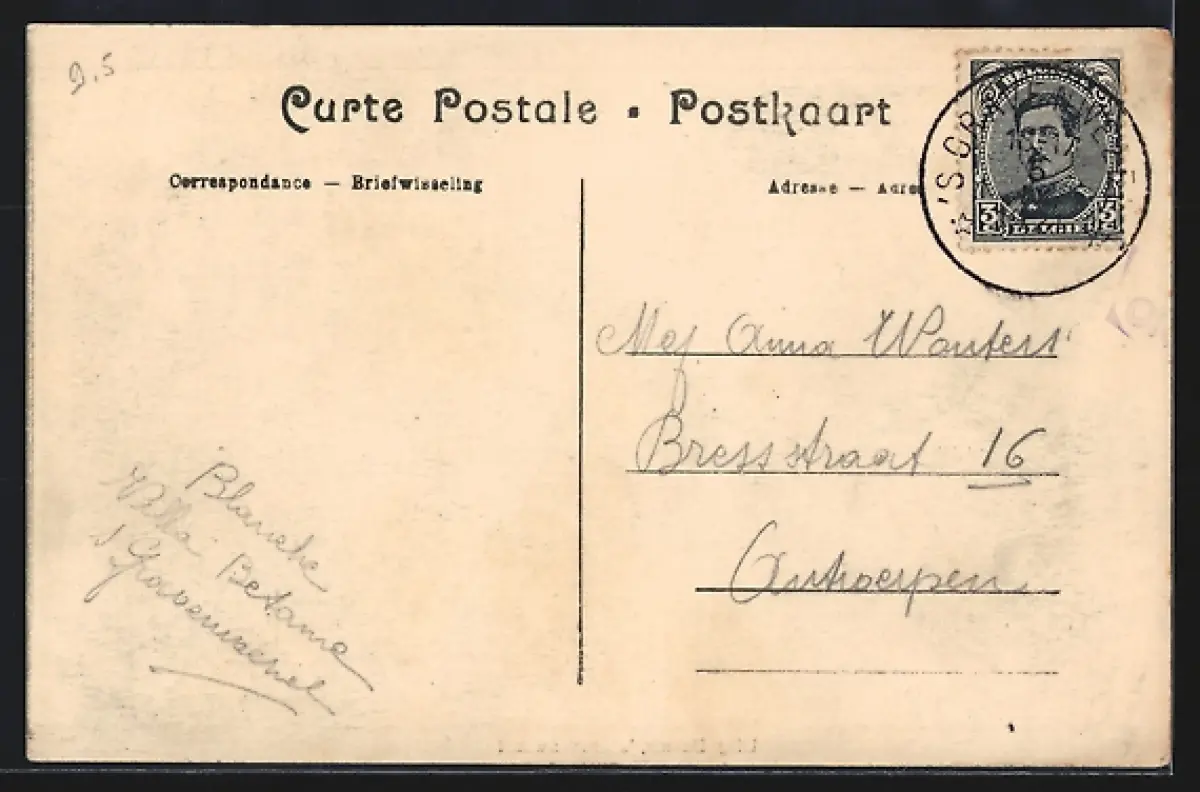 9.5
Carte Postale - Postkaart
Correspondance — Briefwisseling
Adresse — Adres
'S GRAVENWEZEL
3 BELGIE
Mej. Anna Wouters
Bresstraat 16
Antwerpen
Blanche
Villa Betanie
's Gravenwezel